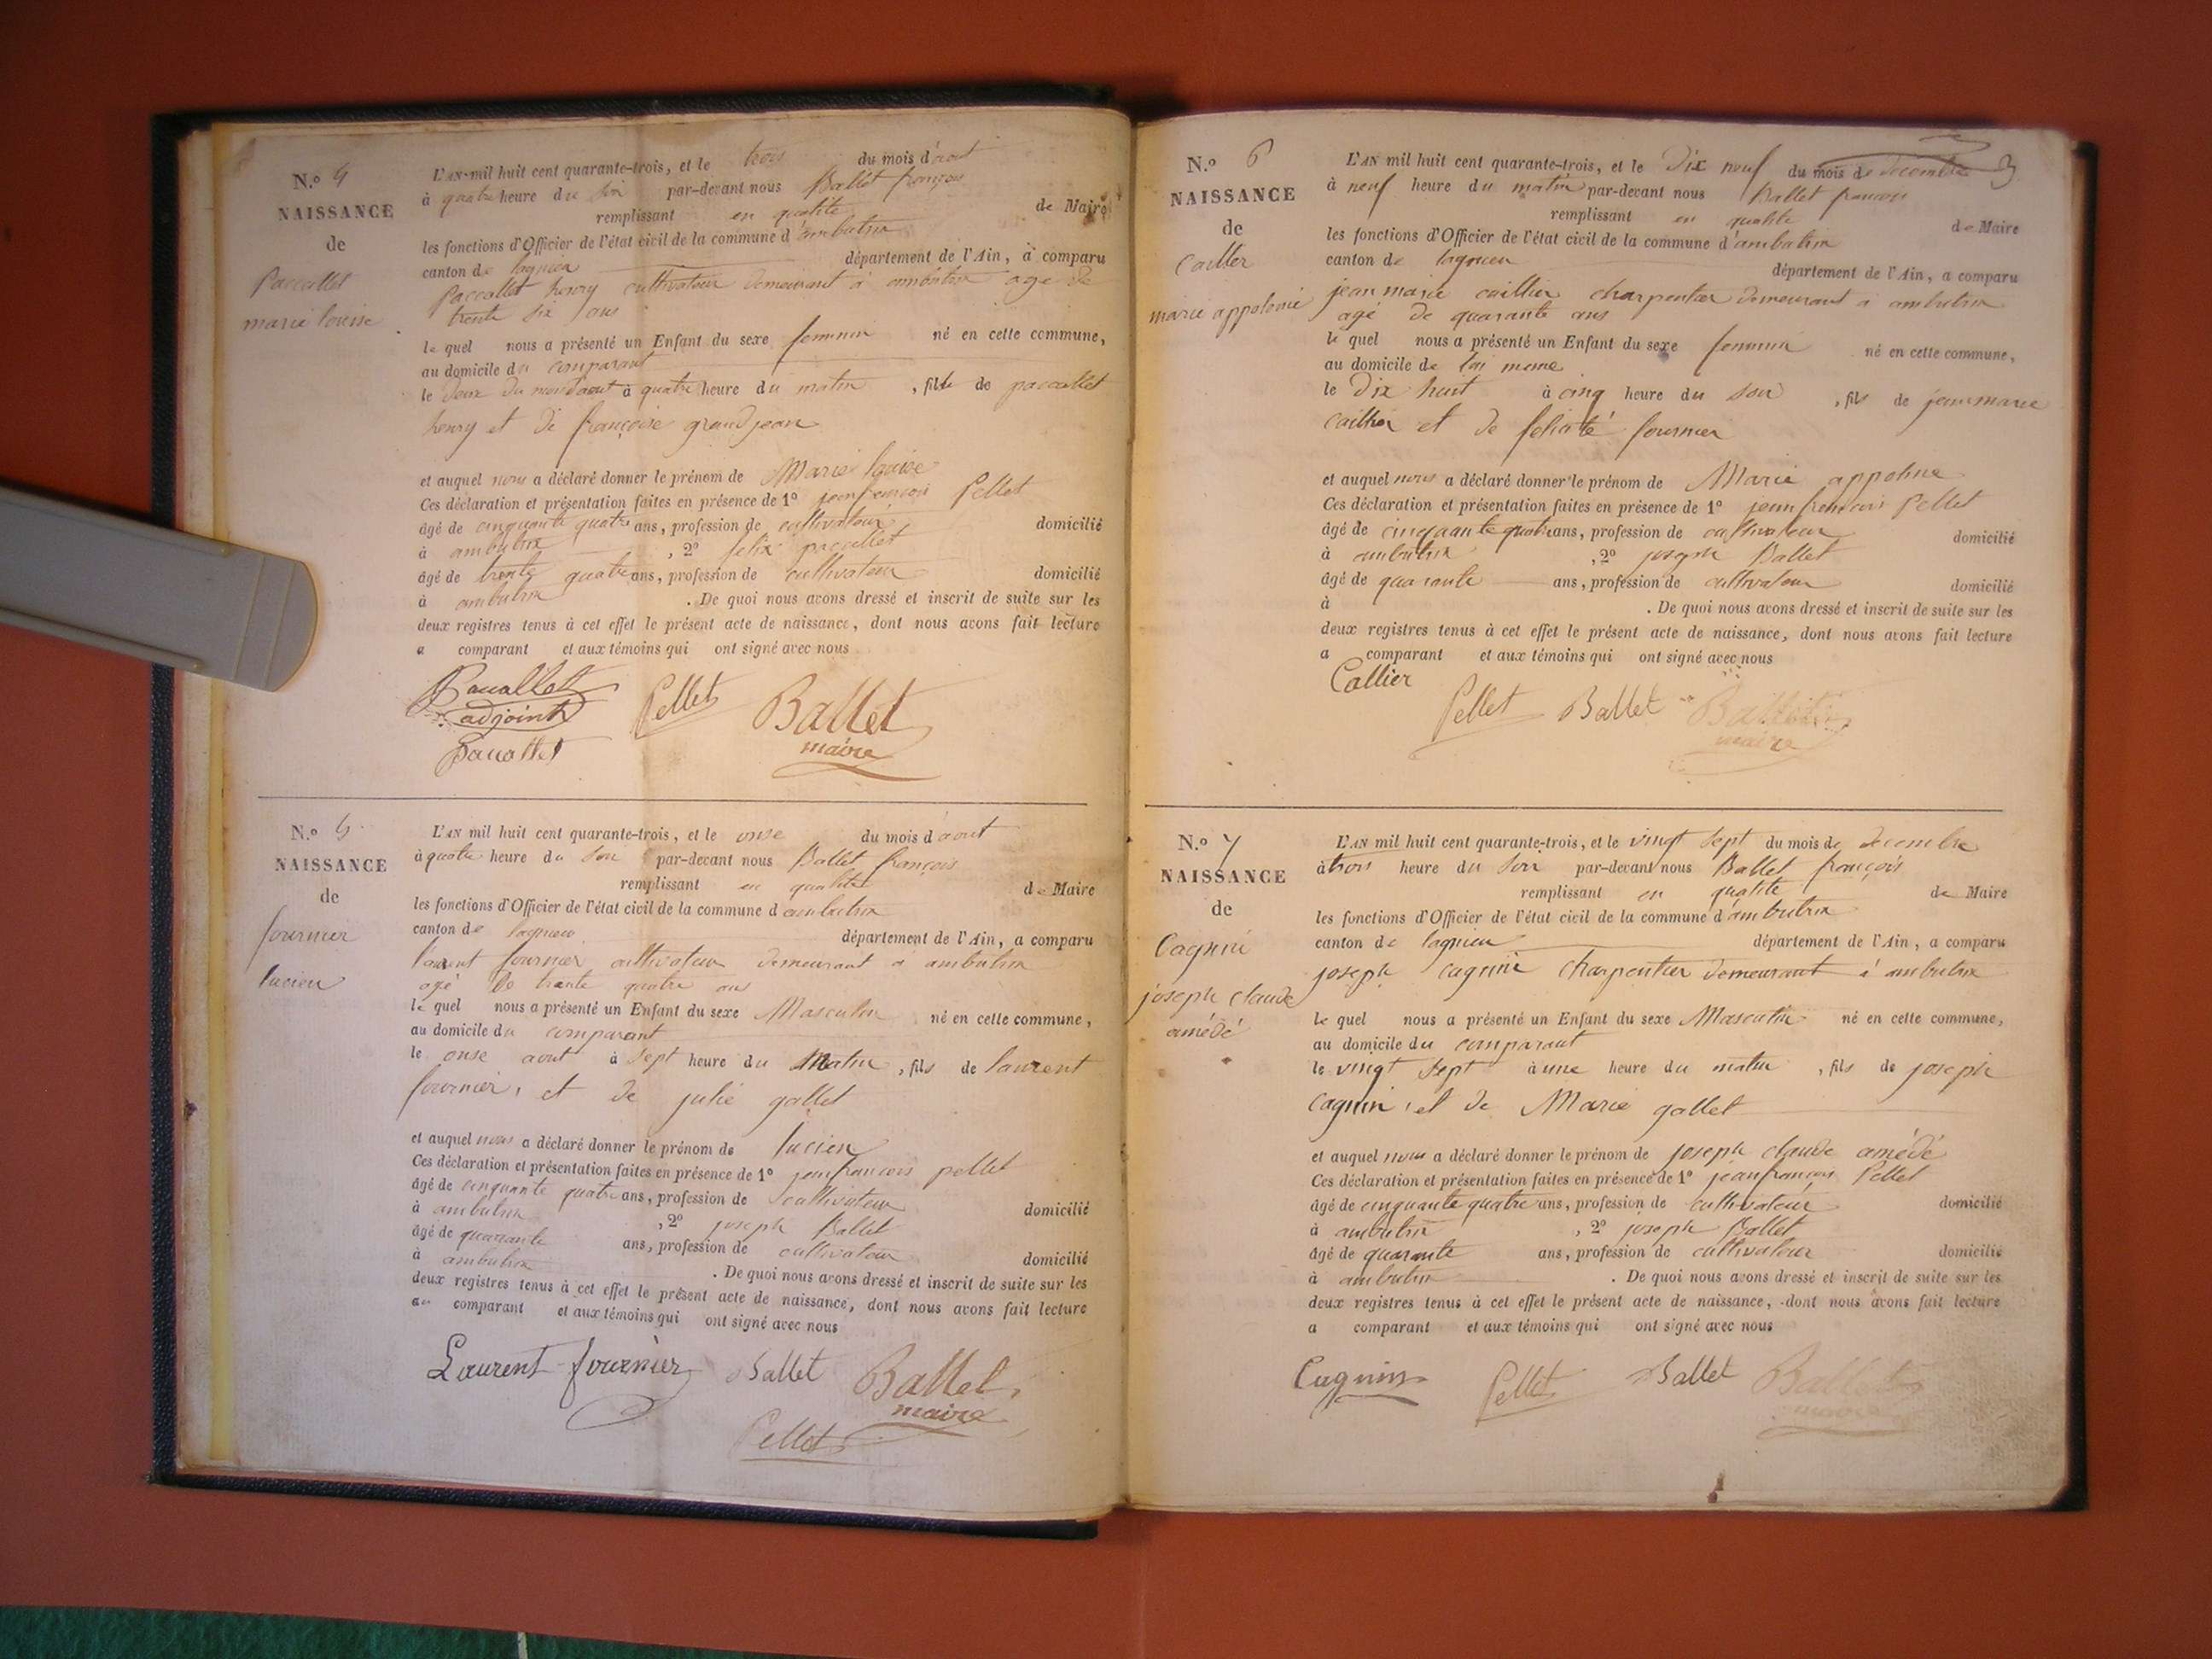 N.o 4
NAISSANCE
de
Paccallet
marie louise
L'AN mil huit cent quarante-trois, et le trois du mois d'aout
à quatre heure du soir par-devant nous Ballet françois
remplissant en qualité de Maire
les fonctions d'Officier de l'état civil de la commune d'ambutrix
canton de lagnieu département de l'Ain, à comparu
paccallet henry cultivateur demeurant à ambutrix agé de
trente six ans
le quel nous a présenté un Enfant du sexe feminin né en cette commune,
au domicile du comparant
le deux du mois d'aout à quatre heure du matin, fille de paccallet
henry et de françoise grandjean
et auquel nous a déclaré donner le prénom de Marie louise
Ces déclaration et présentation faites en présence de 1º jean françois Pellet
âgé de cinquante quatre ans, profession de cultivateur domicilié
à ambutrix, 2º felix paccallet
âgé de trente quatre ans, profession de cultivateur domicilié
à ambutrix. De quoi nous avons dressé et inscrit de suite sur les
deux registres tenus à cet effet le présent acte de naissance, dont nous avons fait lecture
a comparant et aux témoins qui ont signé avec nous
Pacallet Pellet Ballet
adjoint maire
Pacallet
N.o 5
NAISSANCE
de
fournier
lucien
L'AN mil huit cent quarante-trois, et le onse du mois d'aout
à quatre heure du soir par-devant nous Ballet françois
remplissant en qualité de Maire
les fonctions d'Officier de l'état civil de la commune d'ambutrix
canton de lagnieu département de l'Ain, a comparu
laurent fournier cultivateur demeurant à ambutrix
agé de trante quatre ans
le quel nous a présenté un Enfant du sexe Masculin né en cette commune,
au domicile du comparant
le onse aout à sept heure du Matin, fils de laurent
fournier, et de julie gallet
et auquel nous a déclaré donner le prénom de lucien
Ces déclaration et présentation faites en présence de 1º jean francois pellet
âgé de cinquante quatre ans, profession de cultivateur domicilié
à ambutrix, 2º joseph Ballet
âgé de quarante ans, profession de cultivateur domicilié
à ambutrix. De quoi nous avons dressé et inscrit de suite sur les
deux registres tenus à cet effet le présent acte de naissance, dont nous avons fait lecture
au comparant et aux témoins qui ont signé avec nous
Laurent fournier Ballet Ballet
maire
Pellet
3
N.o 6
NAISSANCE
de
Caillier
marie appolonie
L'AN mil huit cent quarante-trois, et le Dix neuf du mois de decembre
à neuf heure du matin par-devant nous Ballet francois
remplissant en qualité de Maire
les fonctions d'Officier de l'état civil de la commune d'ambutrix
canton de lagnieu département de l'Ain, a comparu
jean marie caillier charpentier demeurant à ambutrix
agé de quarante ans
le quel nous a présenté un Enfant du sexe feminin né en cette commune,
au domicile de lui meme
le Dix huit à cinq heure du soir, fils de jean marie
caillier et de felicité fournier
et auquel nous a déclaré donner le prénom de Marie appoline
Ces déclaration et présentation faites en présence de 1º jean francois Pellet
âgé de cinquante quatre ans, profession de cultivateur domicilié
à ambutrix, 2º joseph Ballet
âgé de quarante ans, profession de cultivateur domicilié
à. De quoi nous avons dressé et inscrit de suite sur les
deux registres tenus à cet effet le présent acte de naissance, dont nous avons fait lecture
a comparant et aux témoins qui ont signé avec nous
Callier
Pellet Ballet Ballet
maire
N.o 7
NAISSANCE
de
Cagnin
joseph claude
amédé
L'AN mil huit cent quarante-trois, et le vingt sept du mois de decembre
à trois heure du soir par-devant nous Ballet françois
remplissant en qualité de Maire
les fonctions d'Officier de l'état civil de la commune d'ambutrix
canton de lagnieu département de l'Ain, a comparu
joseph cagnin charpentier demeurant à ambutrix
le quel nous a présenté un Enfant du sexe Masculin né en cette commune,
au domicile du comparant
le vingt sept à une heure du matin, fils de joseph
cagnin, et de Marie gallet
et auquel nous a déclaré donner le prénom de joseph claude amédé
Ces déclaration et présentation faites en présence de 1º jean françois Pellet
âgé de cinquante quatre ans, profession de cultivateur domicilié
à ambutrix, 2º joseph Ballet
âgé de quarante ans, profession de cultivateur domicilié
à ambutrix. De quoi nous avons dressé et inscrit de suite sur les
deux registres tenus à cet effet le présent acte de naissance, dont nous avons fait lecture
a comparant et aux témoins qui ont signé avec nous
Cagnin Pellet Ballet Ballet
maire